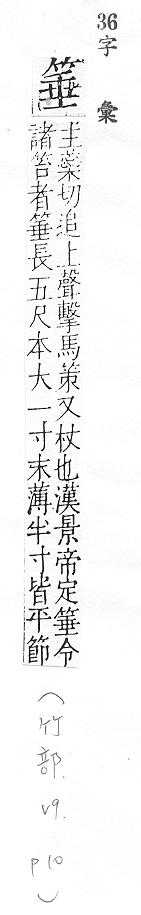 36
字彙
箠
主蘂切追上聲擊馬策又杖也漢景帝定箠令
諸笞者箠長五尺本大一寸末薄半寸皆平節
(竹部. v9. p10)